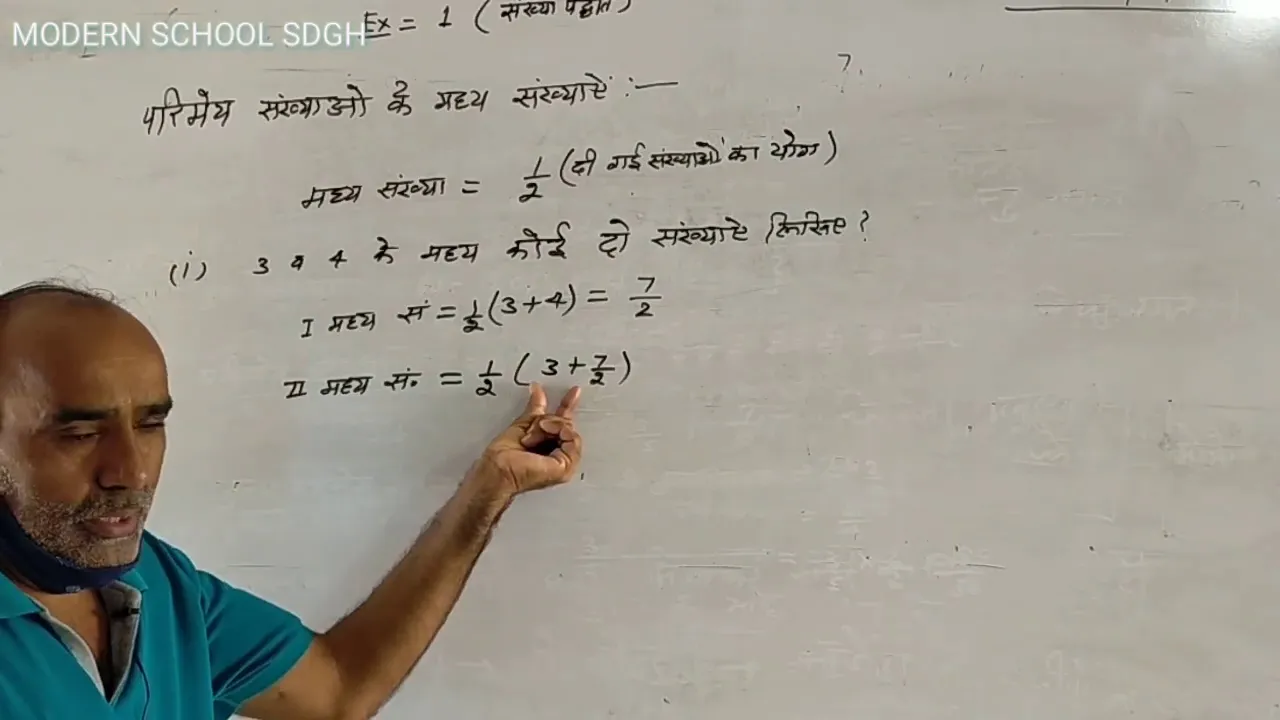 MODERN SCHOOL SDGH
Ex = 1 ( संख्या पद्धति )
परिमेय संख्याओ के मध्य संख्याऐं :—
मध्य संख्या = 1/2 (दी गई संख्याओं का योग)
(i) 3 व 4 के मध्य कोई दो संख्याऐ लिखिए ?
I मध्य सं = 1/2 (3+4) = 7/2
II मध्य सं. = 1/2 ( 3 + 7/2 )